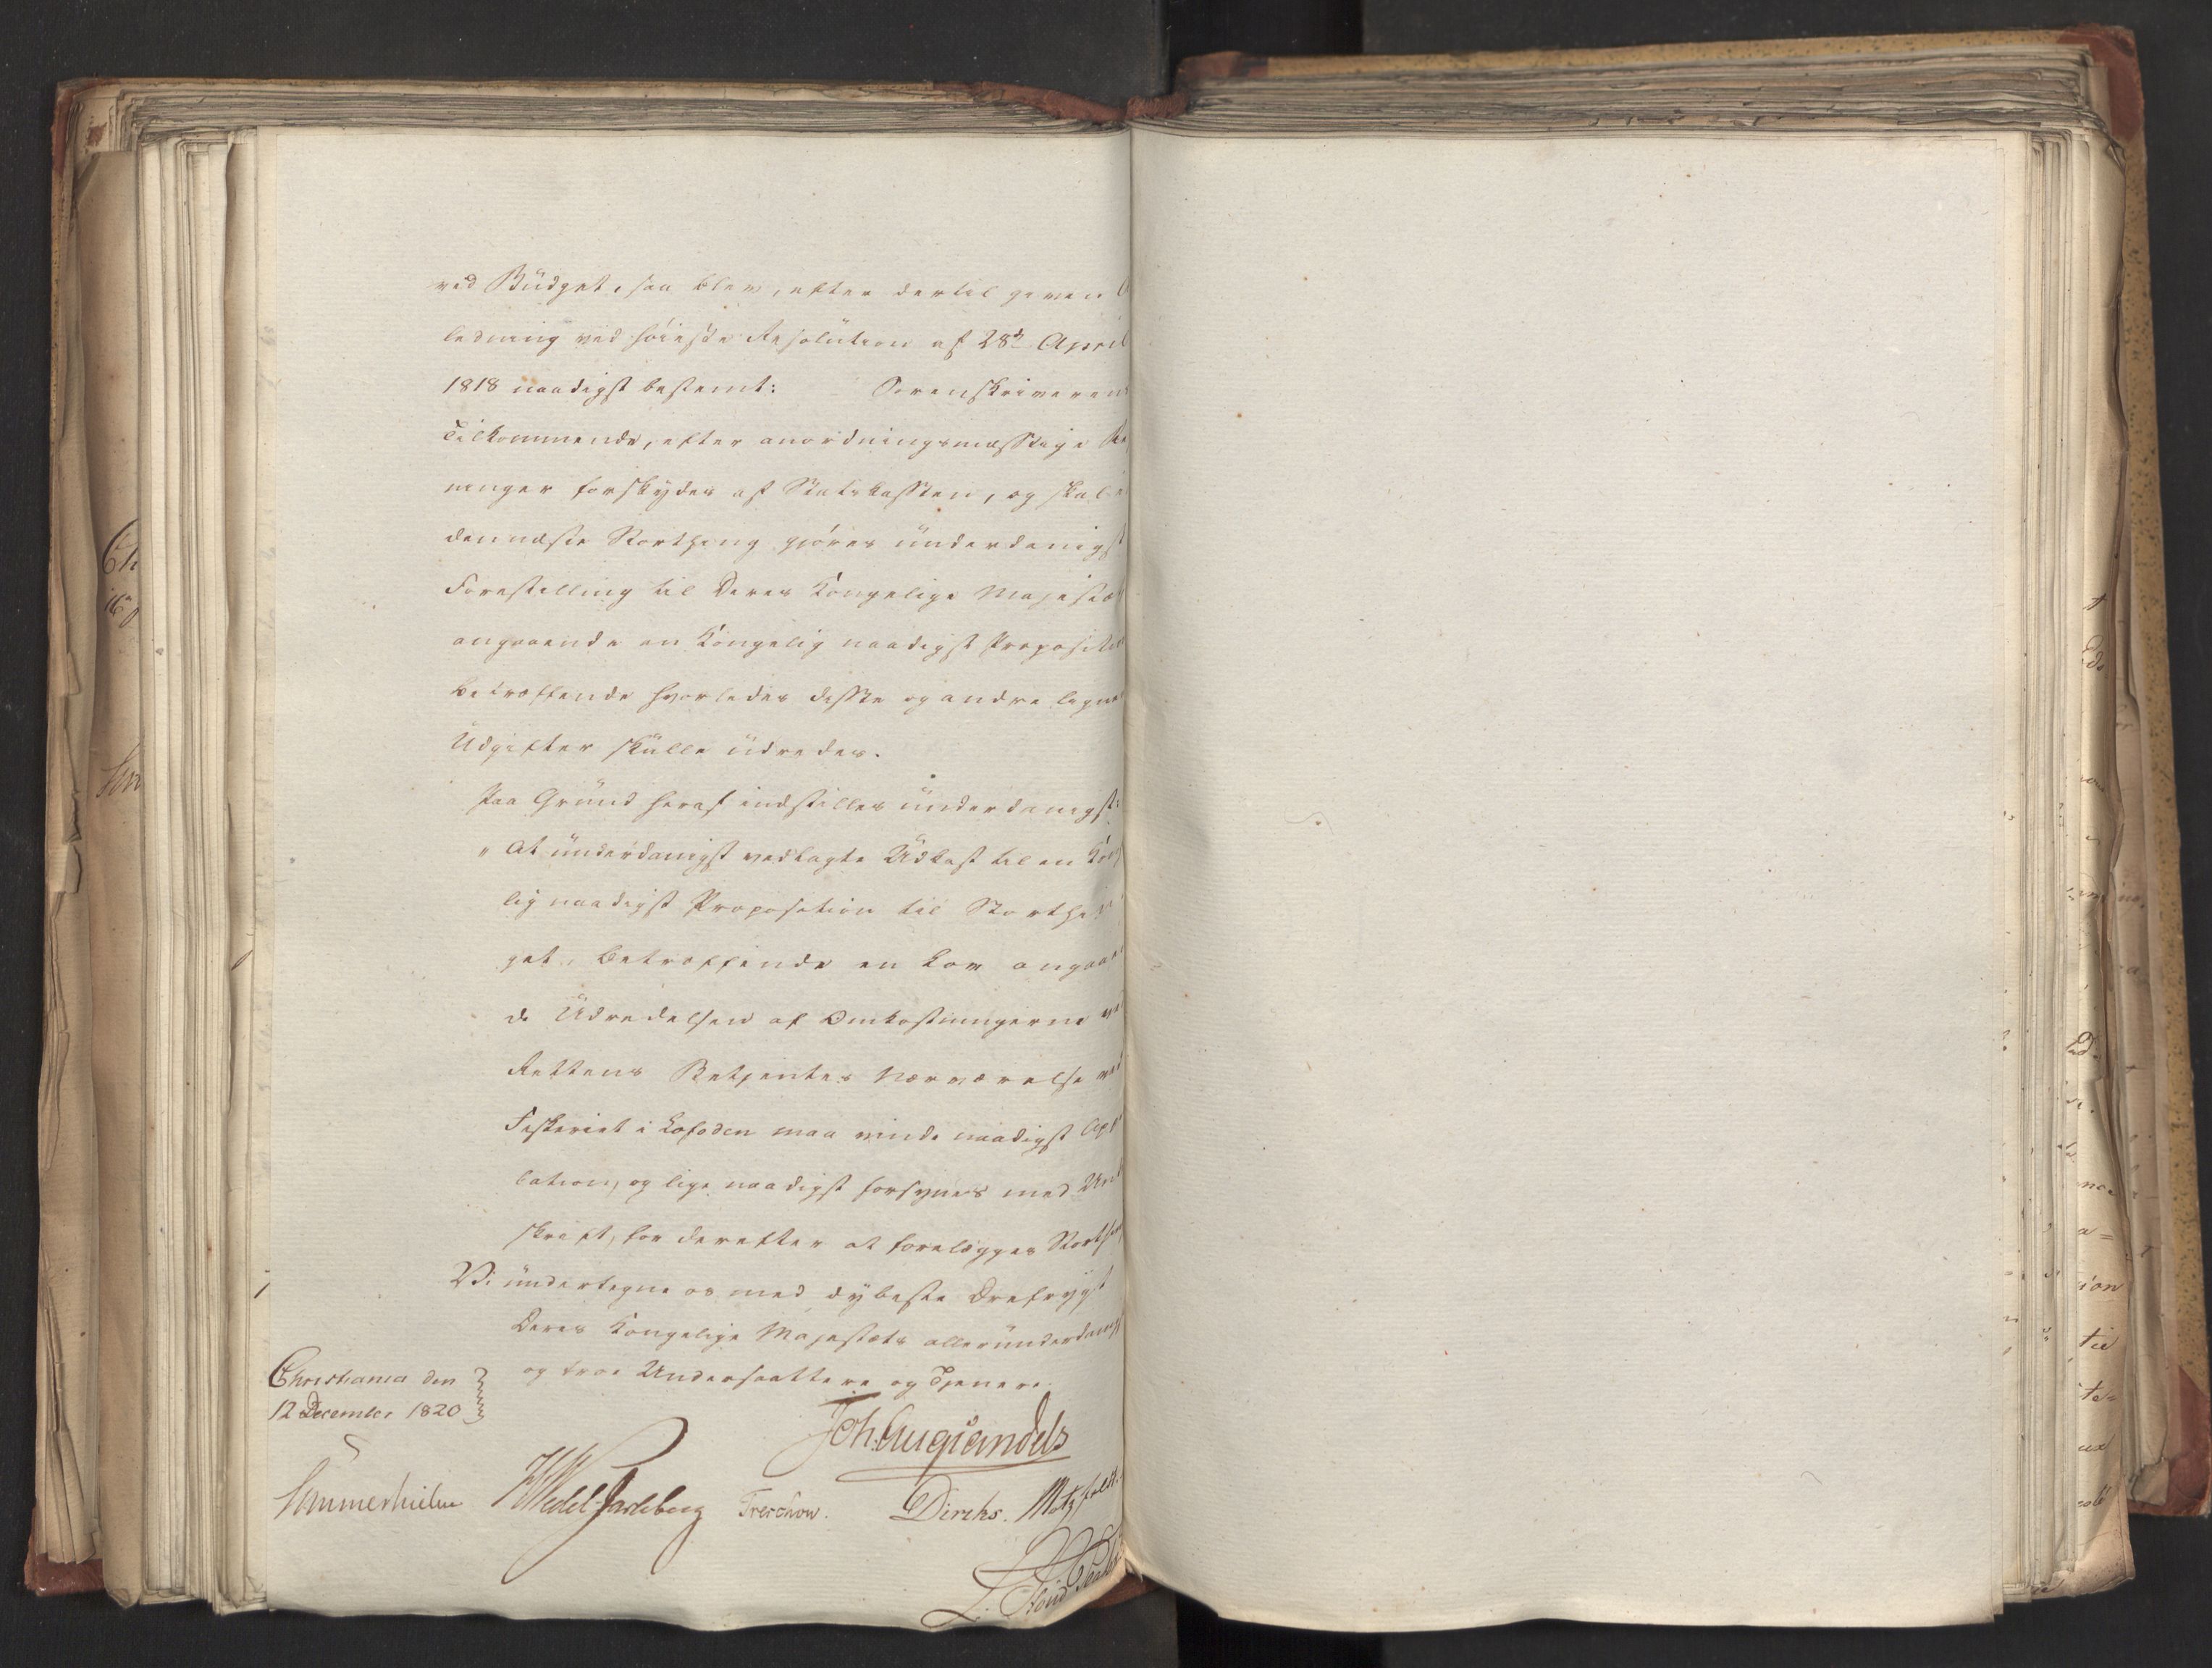 ved Büdget, saa blev, efter dertil given
ledning ved höieste Resolütion af 28d April
1818 naadigst bestemt: Sorenskriveren
Tilkommende, efter anordningsmæssige
ninger forskydes af Statskassen, og skal
den næste Storthing gjöres ünderdanigst
Forestilling til Deres Kongelige Majestæt
angaaende en Kongelig naadigst Proposition
betræffende hvorledes disse og andre lign
Udgifter skülle üdredes.
Paa Gründ heraf indstilles ünderdanigst:
" At ünderdanigst vedlagte Üdkast til en Konge
lig naadigst Proposition til Storthin
get, betræffende en Lov angaaen
de Üdredelsen af Omkostningerne ved
Rettens Betjentes Nærværelse ved
Fiskeriet i Lofoden maa vinde naadigst App
bation, og lige naadigst forsynes med Und
skrift, for derefter at forelægges Storthing
Vi ündertegne os med dybeste Ærefrygt
Deres Kongelige Majestæts alleründerdanigst
og troe Undersaattere og Tjenere.
Christiania den
12 December 1820
Joh. Aug. Sandels
Sommerhielm HWedel-Jarlsberg Treschow. Diriks. Motzfeldt.